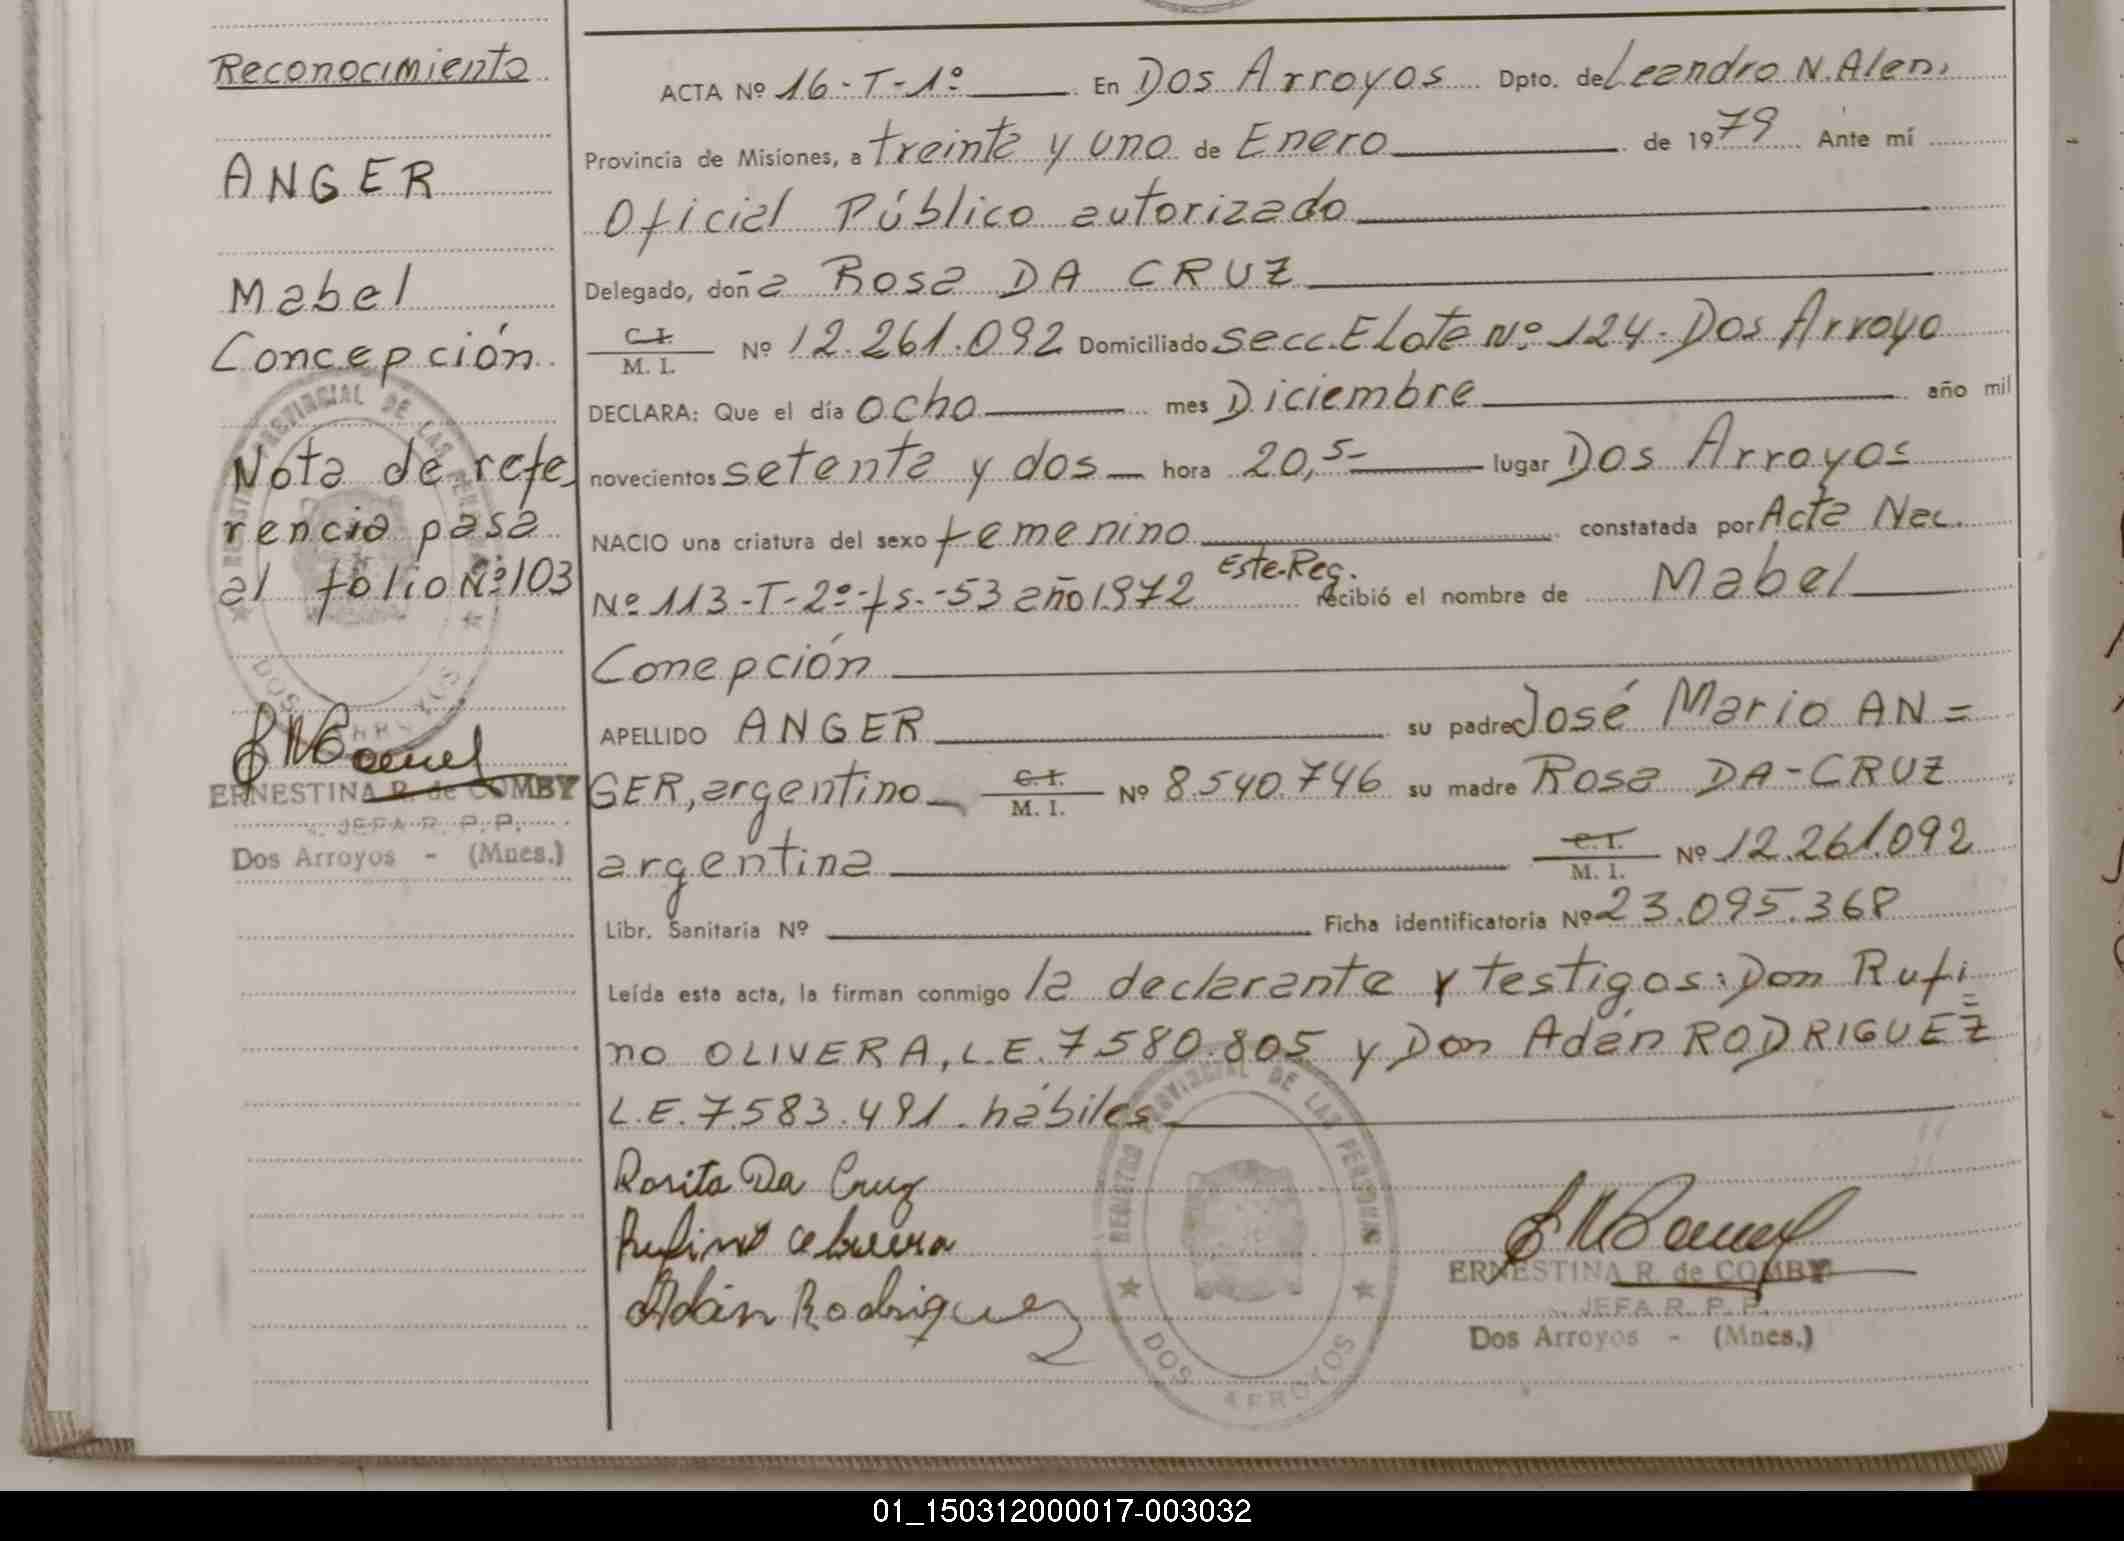 Reconocimiento
ANGER
Mabel
Concepción
Nota de refe
rencia pasa
al folio Nº 103
REGISTRO PROVINCIAL DE LAS PERSONAS
DOS ARROYOS
ERNESTINA R. de COMBY
JEFA R. P. P.
Dos Arroyos - (Mnes.)
ACTA Nº 16-T-1º En Dos Arroyos Dpto. de Leandro N. Alem.
Provincia de Misiones, a treinta y uno de Enero de 1979 Ante mí
Oficial Público autorizado
Delegado, doña Rosa DA CRUZ
C. I.
M. I. Nº 12.261.092 Domiciliado secc. E Lote Nº 124- Dos Arroyo
DECLARA: Que el día ocho mes Diciembre año mil
novecientos setenta y dos hora 20,5- lugar Dos Arroyos
NACIO una criatura del sexo femenino constatada por Acta Nac.
Nº 113-T-2º-fs.-53 año 1972 Este-Reg. recibió el nombre de Mabel
Conepción
APELLIDO ANGER su padre José Mario AN=
GER, argentino C. I. M. I. Nº 8.540.746 su madre Rosa DA-CRUZ
argentina C. I. M. I. Nº 12.261.092
Libr. Sanitaria Nº Ficha identificatoria Nº 23.095.368
Leída esta acta, la firman conmigo la declarante y testigos: Don Rufi=
no OLIVERA, L.E. 7580.805 y Don Adán RODRIGUEZ
L.E. 7.583.491. hábiles
Rosita Da Cruz
Rufino
Adán Rodriguez
REGISTRO PROVINCIAL DE LAS PERSONAS
DOS ARROYOS
ERNESTINA R. de COMBY
JEFA R. P. P.
Dos Arroyos - (Mnes.)
01_150312000017-003032